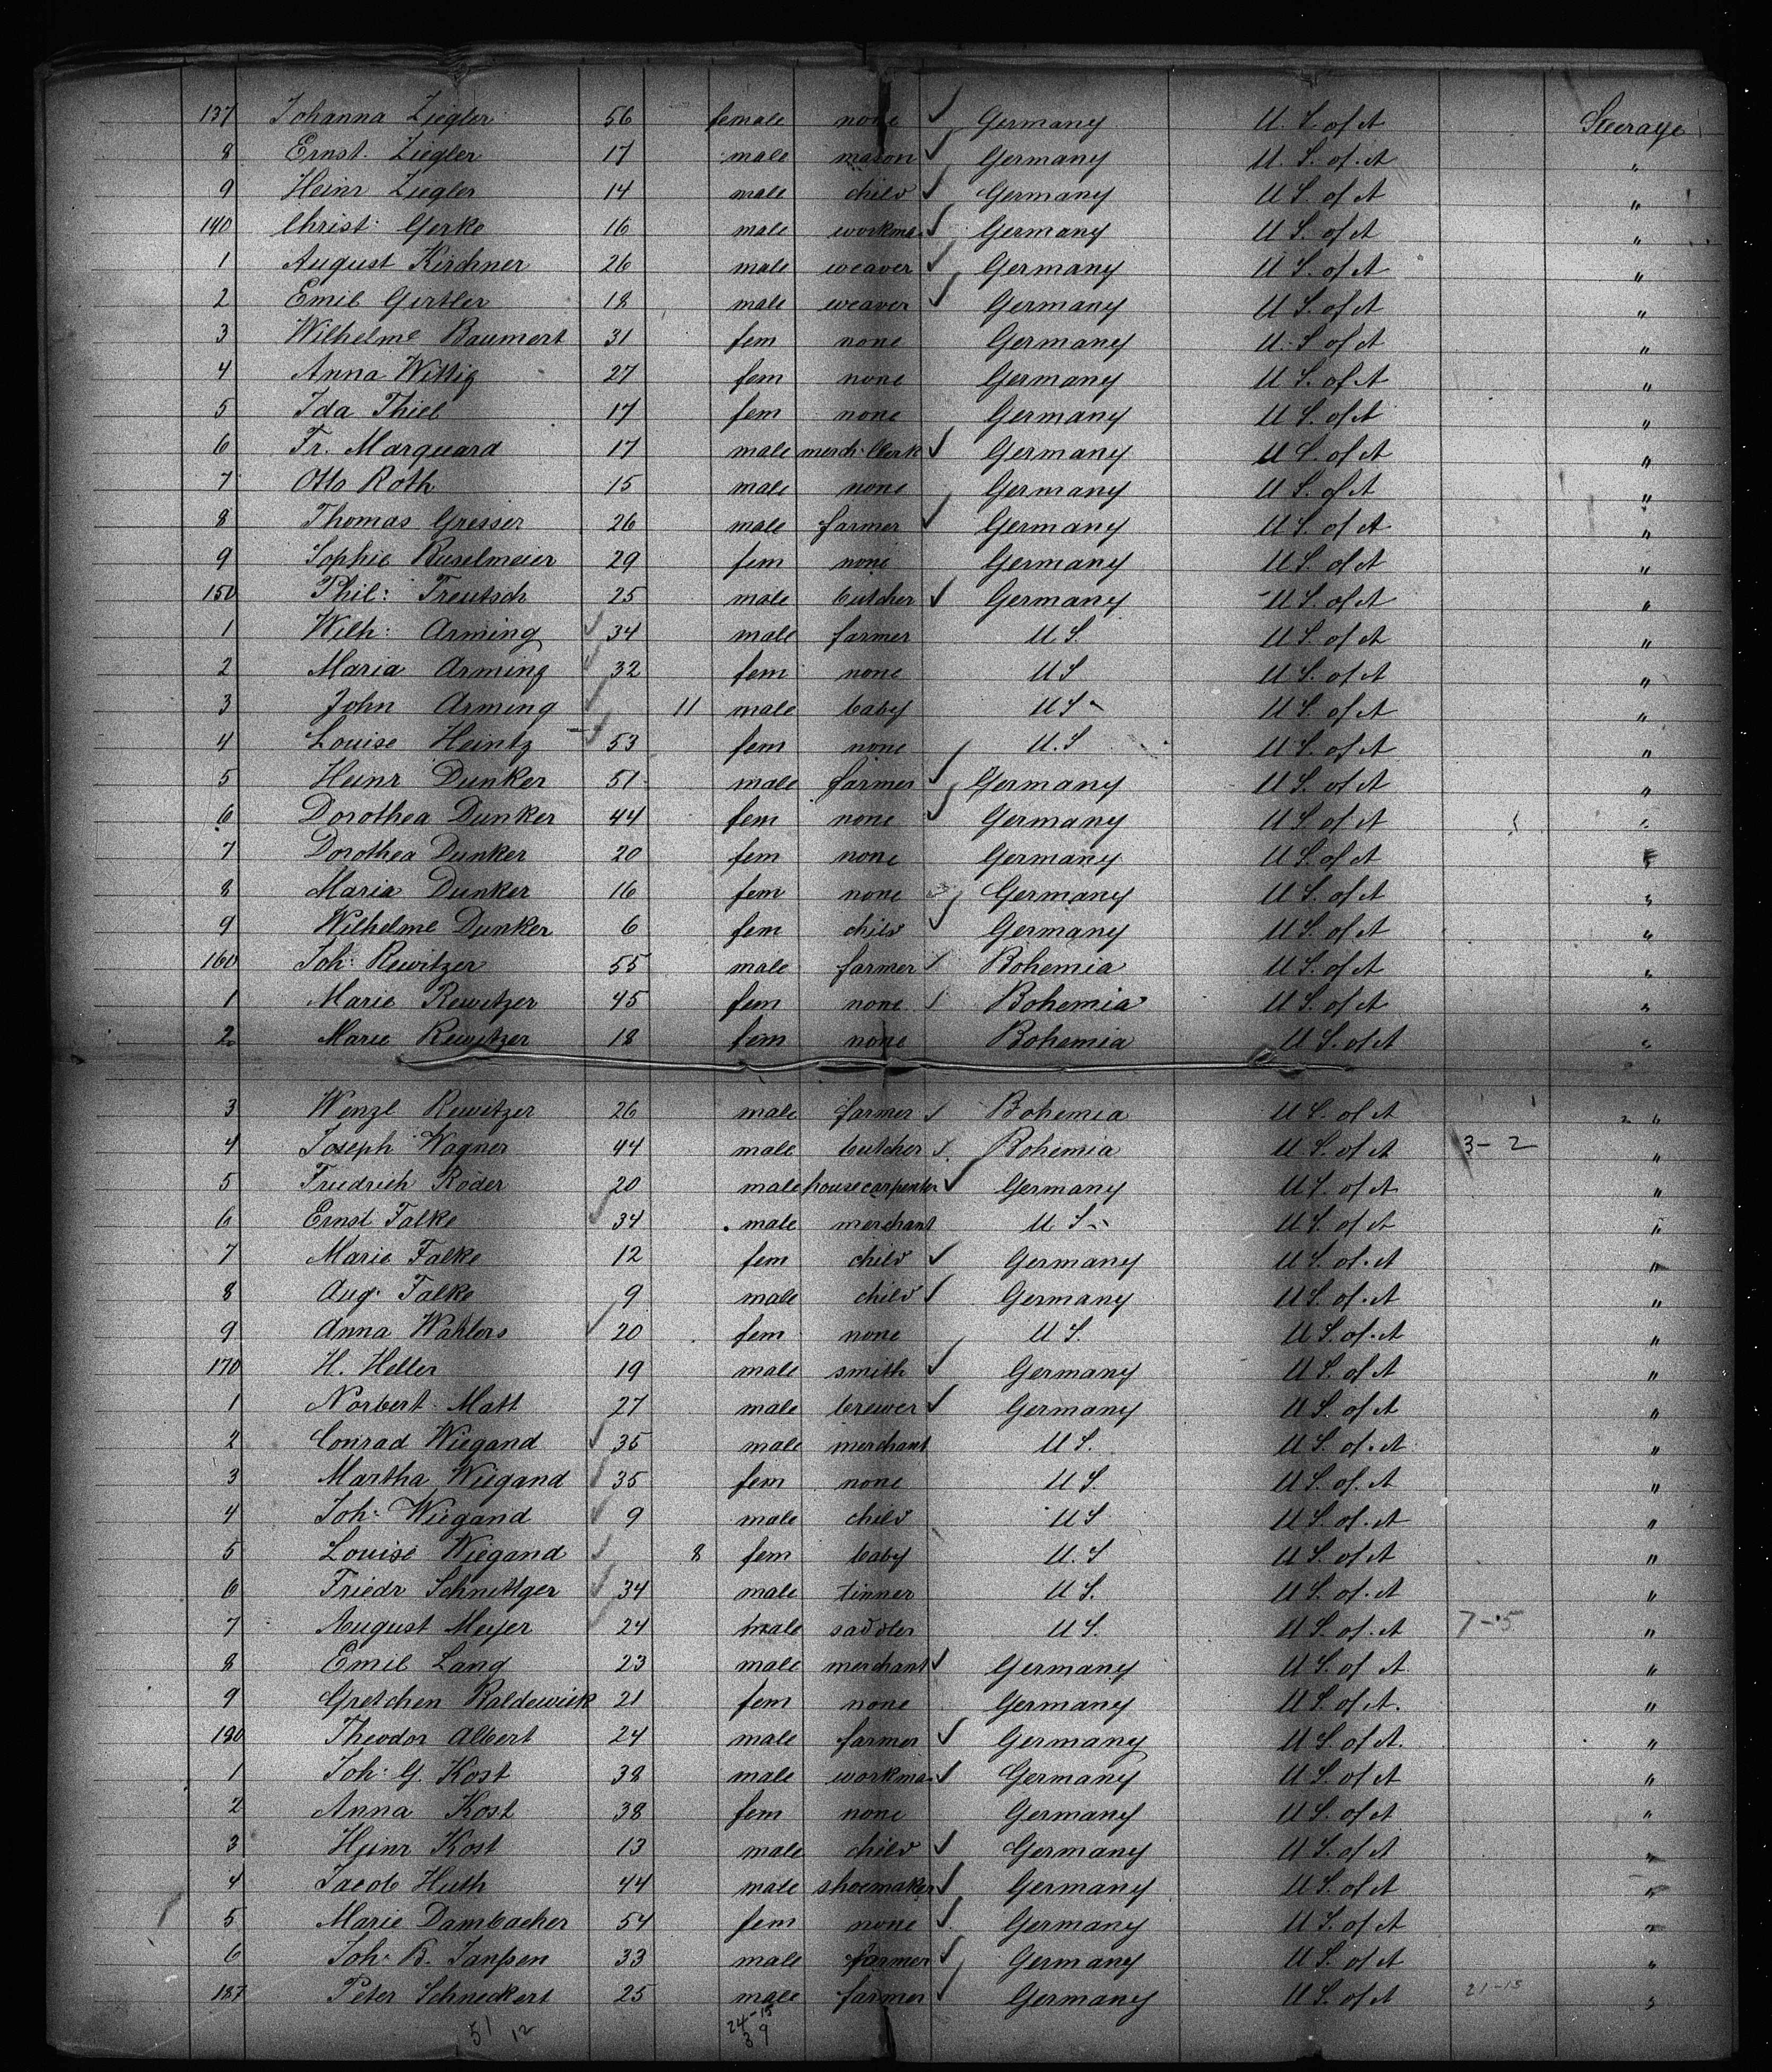 137 Johanna Ziegler 56 female none ✓ Germany U.S. of A Steerage
8 Ernst Ziegler 17 male mason ✓ Germany U.S. of A "
9 Heinr Ziegler 14 male child ✓ Germany U.S. of A "
140 Christ: Gerke 16 male workma ✓ Germany U.S. of A "
1 August Kirchner 26 male weaver ✓ Germany U.S. of A "
2 Emil Gertler 18 male weaver ✓ Germany U.S. of A "
3 Wilhelme Baumert 31 fem none Germany U.S. of A "
4 Anna Wittig 27 fem none Germany U.S. of A "
5 Ida Thiel 17 fem none Germany U.S. of A "
6 Fr. Marquard 17 male merch: Clerk ✓ Germany U.S. of A "
7 Otto Roth 15 male none Germany U.S. of A "
8 Thomas Gresser 26 male farmer ✓ Germany U.S. of A "
9 Sophie Ruselmeier 29 fem none Germany U.S. of A "
150 Phil: Treutsch 25 male butcher ✓ Germany U.S. of A "
1 Wilh: Arming ✓ 34 male farmer U.S. U.S. of A "
2 Maria Arming ✓ 32 fem none U.S U.S. of A "
3 John Arming ✓ 11 male baby U.S U.S. of A "
4 Louise Heintz ✓ 53 fem none U.S U.S. of A "
5 Heinr Dunker 51 male farmer ✓ Germany U.S. of A "
6 Dorothea Dunker 44 fem none ✓ Germany U.S. of A "
7 Dorothea Dunker 20 fem none Germany U.S. of A "
8 Maria Dunker 16 fem none Germany U.S. of A "
9 Wilhelme Dunker 6 fem child ✓ Germany U.S. of A "
160 Joh: Rewitzer 55 male farmer ✓ Bohemia U.S. of A "
1 Marie Rewitzer 45 fem none ✓ Bohemia U.S. of A "
2 Marie Rewitzer 18 fem none Bohemia U.S. of A "
3 Wenzl Rewitzer 26 male farmer ✓ Bohemia U.S. of A "
4 Joseph Wagner 44 male butcher ✓ Bohemia U.S. of A 3-2 "
5 Friedrich Röder 20 male housecarpenter ✓ Germany U.S. of A "
6 Ernst Falke ✓ 34 male merchant U.S U.S. of A "
7 Marie Falke 12 fem child ✓ Germany U.S. of A "
8 Aug. Falke 9 male child ✓ Germany U.S. of A "
9 Anna Wahlers ✓ 20 fem none U.S. U.S. of A "
170 H. Heller 19 male smith ✓ Germany U.S. of A "
1 Norbert Matt 27 male brewer ✓ Germany U.S. of A "
2 Conrad Wiegand ✓ 35 male merchant U.S. U.S. of A "
3 Martha Wiegand ✓ 35 fem none U.S. U.S. of A "
4 Joh: Wiegand ✓ 9 male child U.S U.S. of A "
5 Louise Wiegand ✓ 8 fem baby U.S U.S. of A "
6 Friedr Schnittger ✓ 34 male tinner U.S. U.S. of A "
7 August Meyer ✓ 24 male saddler U.S. U.S. of A 7-15 "
8 Emil Lang 23 male merchant ✓ Germany U.S. of A "
9 Gretchen Baldewick 21 fem none Germany U.S. of A. "
180 Theodor Albert 24 male farmer ✓ Germany U.S. of A. "
1 Joh: G. Kost 38 male workma ✓ Germany U.S. of A "
2 Anna Kost 38 fem none Germany U.S. of A "
3 Heinr Kost 13 male child ✓ Germany U.S. of A "
4 Jacob Huth 44 male shoemaker ✓ Germany U.S. of A "
5 Marie Dambacher 54 fem none ✓ Germany U.S. of A "
6 Joh: B. Janßen 33 male farmer ✓ Germany U.S. of A "
187 Peter Schneckert 25 male farmer ✓ Germany U.S. of A 21-15 "
51 12 24-15
39